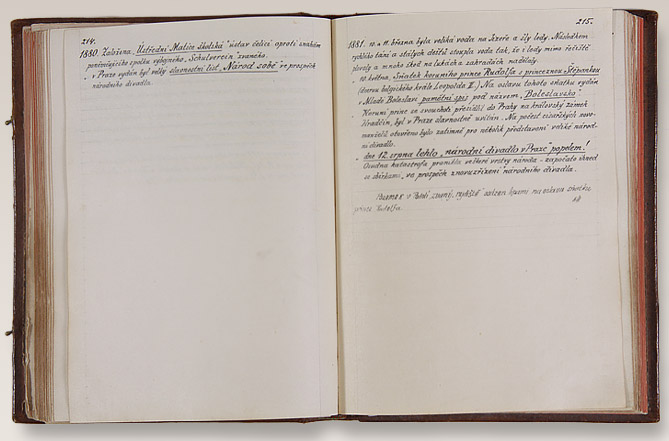 214.
1880. Založena „Ústřední Matice školská" ústav čelící oproti snahám
poněmčujícího spolku výbojného, Schulverein zvaného.
„ v Praze vydán byl velký slavnostní list „Národ sobě" ve prospěch
národního divadla.
215.
1881. 10. a 11. března byla veliká voda na Jizeře a šly ledy. Následkem
rychlého tání a stálých dešťů stoupla voda tak, že i ledy mimo řečiště
plovaly a mnoho škod na lukách a zahradách nadělaly.
10. května, Sňatek korunního prince Rudolfa s princeznou Štěpánkou
(dcerou belgického krále Leopolda II.) Na oslavu tohoto sňatku vydán
v Mladé Boleslavi památní spis pod názvem „Boleslavsko"
Korunní princ se svou chotí přesídlil do Prahy na královský zámek
Hradčin, byl v Praze slavnostně uvítán. Na počest císařských novo-
manželů otevřeno bylo zatímně pro několik představení veliké národ-
ní divadlo.
„ dne 12. srpna lehlo „národní divadlo v Praze" popelem!
Osudná katastrofa pronikla veškeré vrstvy národa - započato ihned
se sbírkami „ve prospěch znovuzřízení národního divadla.
prince Rudolfa.